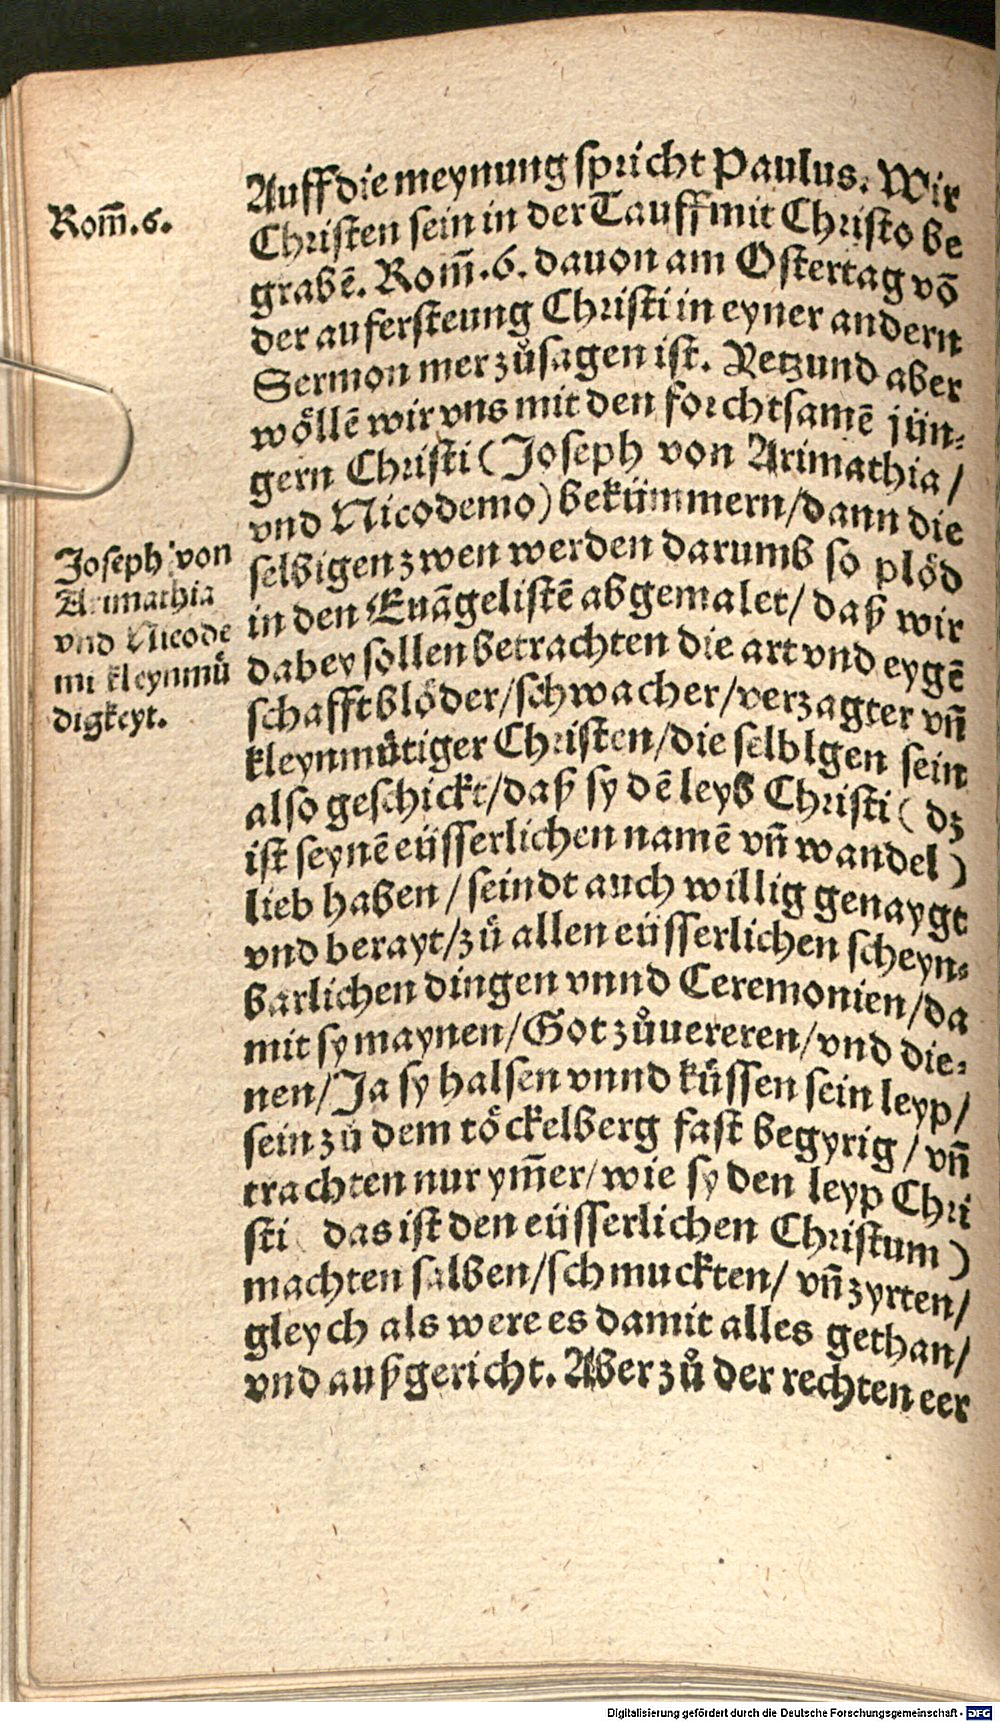 Auff die meynung spricht Paulus. Wir
Rom̃.6.
Christen sein in der Tauff mit Christo be
grabẽ. Rom̃.6. dauon am Ostertag võ
der aufersteung Christi in eyner andern
Sermon mer zůsagen ist. Yetzund aber
wöllẽ wir vns mit den forchtsamẽ jün⸗
gern Christi (Joseph von Arimathia/
vnd Nicodemo) bekümmern/dann die
selbigen zwen werden darumb so plöd
in den Euãgelistẽ abgemalet/ daß wir
dabey sollen betrachten die art vnd eygẽ
schafft blöder/schwacher/verzagter vñ
kleynmůtiger Christen/die selbIgen sein
also geschickt/daß sy dẽ leyb Christi ( dz
ist seynẽ eüsserlichen namẽ vñ wandel )
lieb haben / seindt auch willig genaygt
vnd berayt/zů allen eüsserlichen scheyn⸗
barlichen dingen vnnd Ceremonien/da
mit sy maynen/Got zůuereren/vnd die⸗
nen/Ja sy halsen vnnd küssen sein leyp/
sein zů dem töckelberg fast begyrig / vñ
trachten nur ym̃er/wie sy den leyp Chri
sti ( das ist den eüsserlichen Christum )
machten salben/schmuckten/ vñ zyrten/
gleych als were es damit alles gethan/
vnd außgericht. Aber zů der rechten eer
Joseph von
Arimathia
vnd Nicode
mi kleynmů
digkeyt.
Digitalisierung gefördert durch die Deutsche Forschungsgemeinschaft - DFG